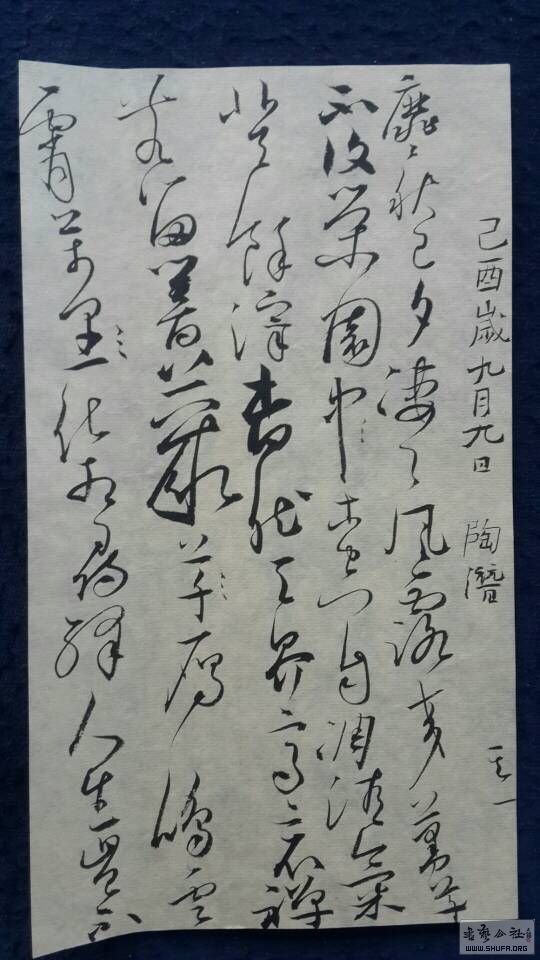 己酉歲九月九日 陶潛 其一
靡々秋已夕淒々風露交蔓草
不復榮園中木空自凋清氣
澄餘滓杳然天界高哀蟬
無留響叢草雁鳴雲
霄萬里化相尋繹人生豈不
書藝公社
WWW.SHUFA.ORG